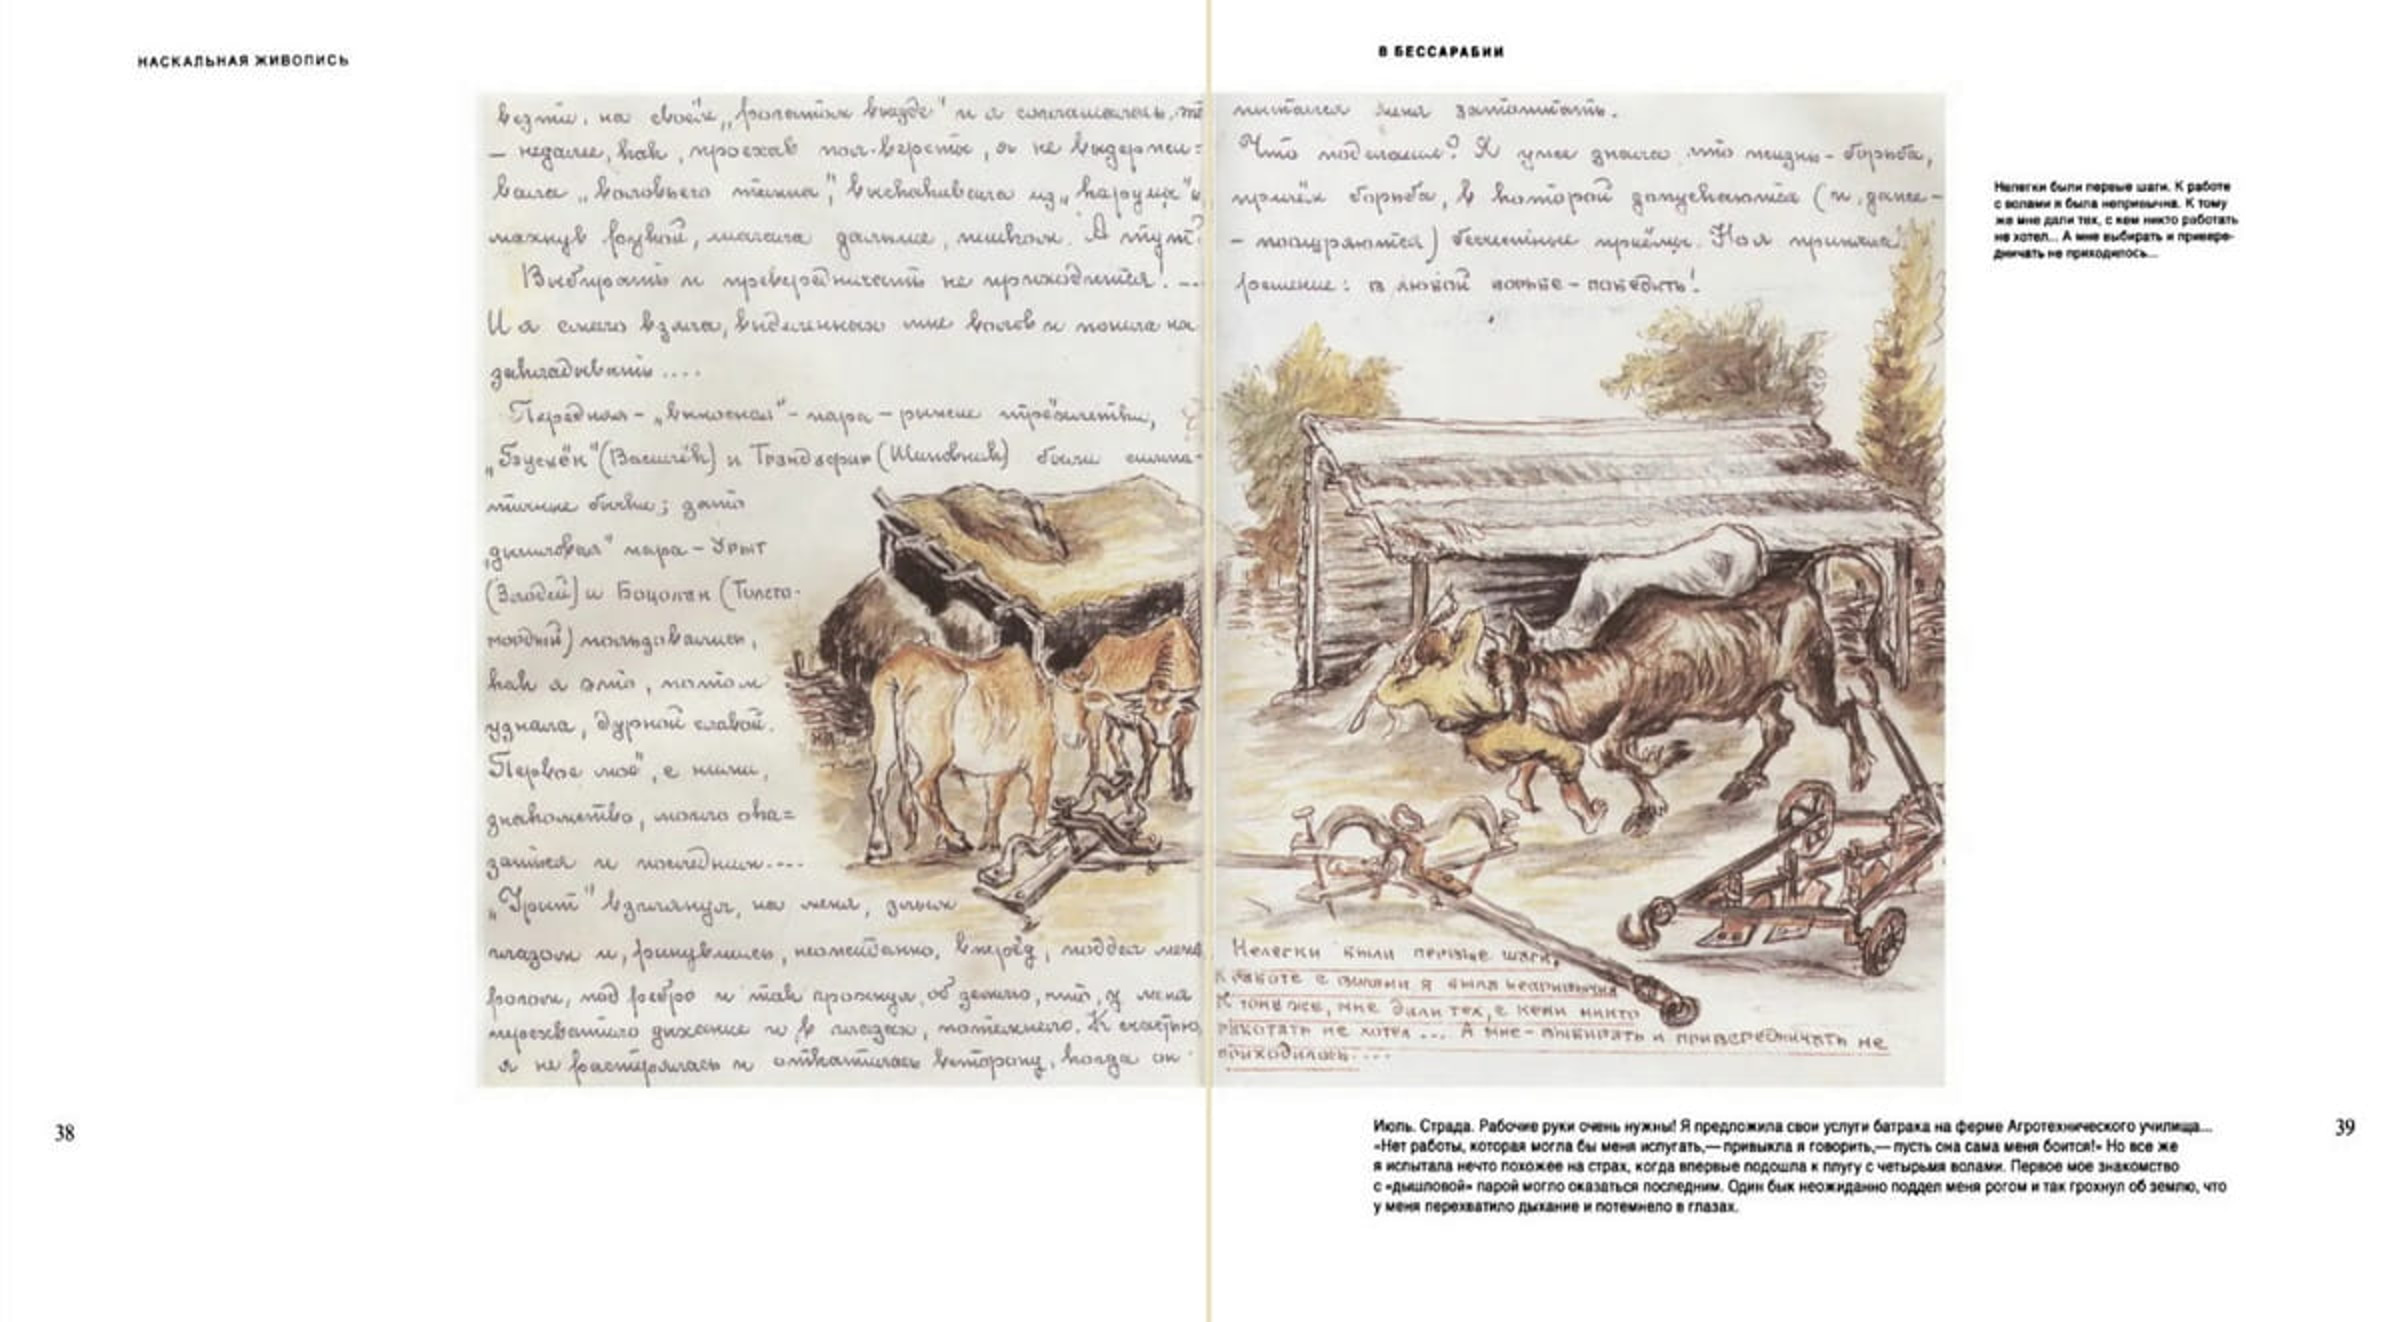 НАСКАЛЬНАЯ ЖИВОПИСЬ
везти, на своём „рогатом выезде" и я соглашалась, то
– недалее, как, проехав пол-версты, я не выдержи=
вала „воловьего темпа", выскакивала из „каруцы" и,
махнув рукой, шагала дальше, пешком. А тут?
Выбирать и превередничать не приходится! –
И я смело взяла, выделенных мне волов и пошла на
закладывать ....
Передняя – „выносная" – пара – рыжие трёхлетки,
„Бэускён" (Василёк) и Трандафир (Шиповник) были симпа-
тичные бычки; зато
„дышловая" пара – Урыт
(Злодей) и Боцолан (Толсто-
мордый) пользовались,
как я это, потом
узнала, дурной славой.
Первое моё, с ними,
знакомство, могло ока=
заться и последним....
„Урыт" взглянул, на меня, злым
глазом и, ринувшись, неожиданно, вперёд, поддел меня
рогом, под ребро и так грохнул, об землю, что, у меня
перехватило дыхание и в глазах, потемнело. К счастью,
я не растерялась и откатилась в сторону, когда он
38
В БЕССАРАБИИ
пытался меня затоптать.
Что поделаешь? Я уже знала что жизнь – борьба,
причём борьба, в которой допускаются (и, даже –
– поощряются) бесчестные приёмы. Но я приняла
решение: в любой борьбе – победить!
Нелегки были первые шаги.
К работе с волами я была непривычна
К тому же, мне дали тех, с кем никто
работать не хотел ... А мне – выбирать и привередничать не
приходилось ....
Нелегки были первые шаги. К работе
с волами я была непривычна. К тому
же мне дали тех, с кем никто работать
не хотел... А мне выбирать и привере-
дничать не приходилось...
Июль. Страда. Рабочие руки очень нужны! Я предложила свои услуги батрака на ферме Агротехнического училища...
«Нет работы, которая могла бы меня испугать,— привыкла я говорить,— пусть она сама меня боится!» Но все же
я испытала нечто похожее на страх, когда впервые подошла к плугу с четырьмя волами. Первое мое знакомство
с «дышловой» парой могло оказаться последним. Один бык неожиданно поддел меня рогом и так грохнул об землю, что
у меня перехватило дыхание и потемнело в глазах.
39